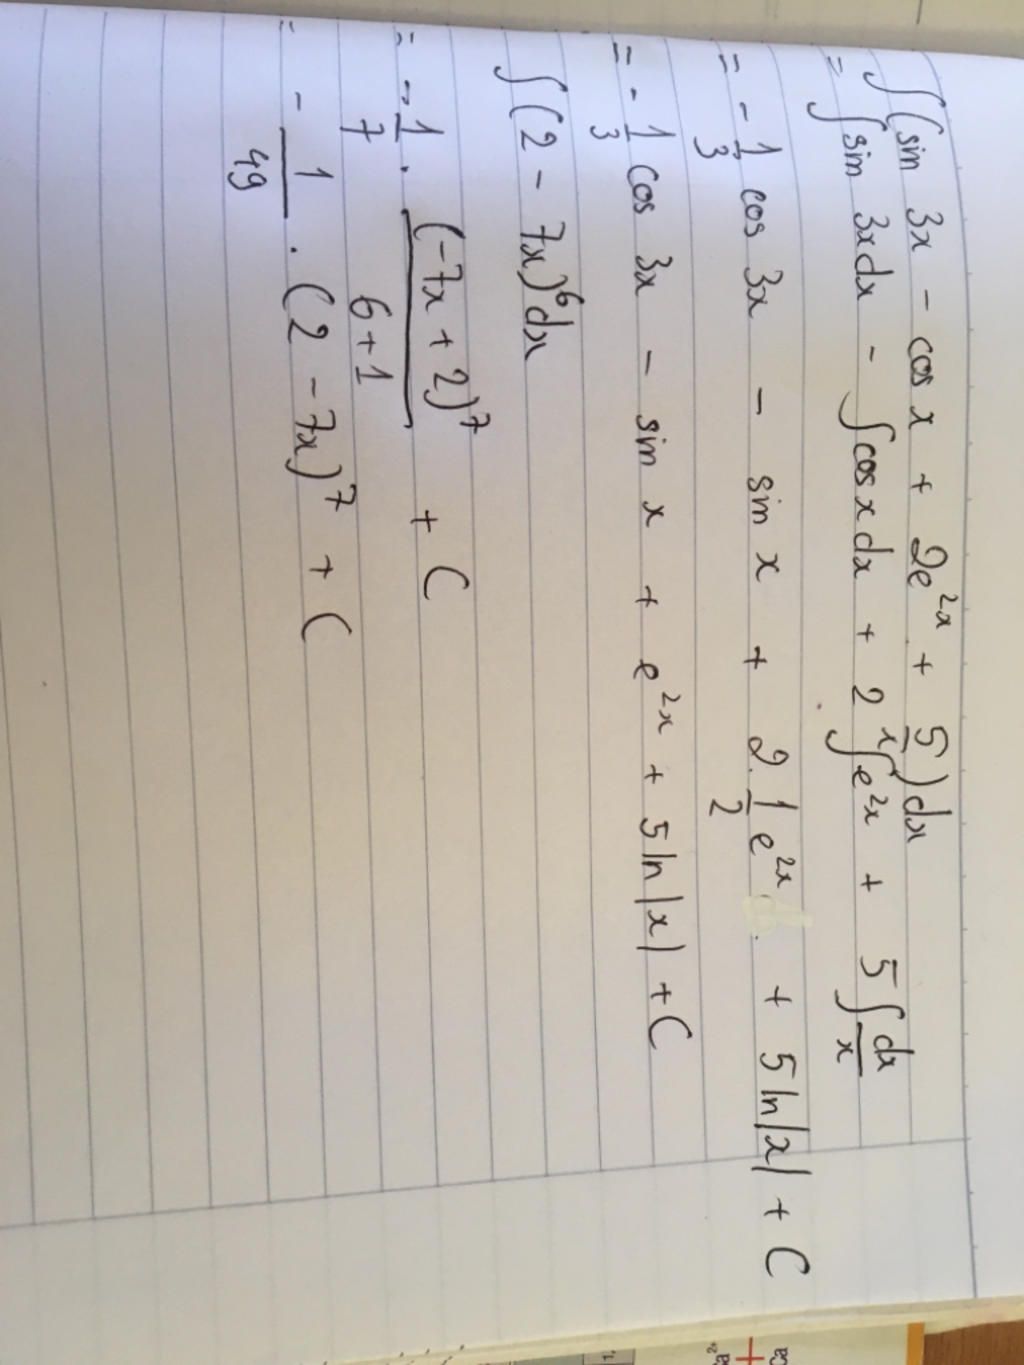 ∫(sin 3x - cos x + 2e^{2x} + 5/x)dx
= ∫sin 3xdx - ∫cosxdx + 2∫e^{2x} + 5∫dx/x
= -1/3 cos 3x - sin x + 2.1/2 e^{2x} + 5ln|x| + C
= -1/3 cos 3x - sin x + e^{2x} + 5ln|x| + C
∫(2 - 7x)^6dx
= -1/7 . (-7x + 2)^7/(6+1) + C
= -1/49 . (2 - 7x)^7 + C